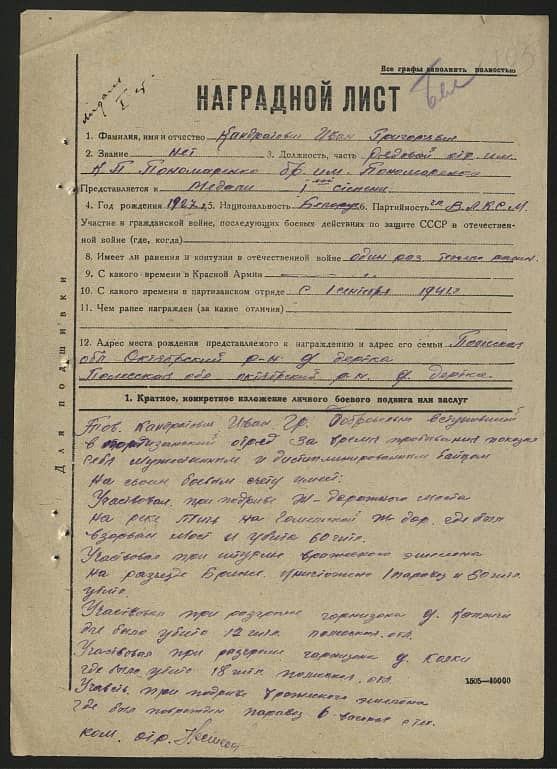 Все графы заполнить полностью
медаль
I ст.
НАГРАДНОЙ ЛИСТ
1. Фамилия, имя и отчество Кандратович Иван Григорьевич
2. Звание нет 3. Должность, часть рядовой отр. им.
Н П Пономаренко бр. им. Пономаренко
Представляется к Медали I ой степени
4. Год рождения 1927 г. 5. Национальность Белорус 6. Партийность чл В.Л.К.С.М.
Участие в гражданской войне, последующих боевых действиях по защите СССР в отечествен-
ной войне (где, когда)
8. Имеет ли ранения и контузии в отечественной войне один раз ранен.
9. С какого времени в Красной Армии
10. С какого времени в партизанском отряде с 1 сентября
11. Чем ранее награжден (за какие отличия)
12. Адрес места рождения представляемого к награждению и адрес его семьи Полесская
обл. Октябрский р-н д
Полесская обл октябрский р.н. д.
Для подшивки
1. Краткое, конкретное изложение личного боевого подвига или заслуг
Тов. Кандратович Иван Гр. Добровольно вступивший
в партизанский отряд за время пребывания показал
себя мужественным и дисциплинированым бойцом
На своем боевом счету имеет:
Участвовал при подрыве ж-дорожного моста
на реке на Гомельской ж дор. где был
взорван мост и убито 60 гитл.
Участвовал при штурме вражеского эшелона
на разъезде Бринев. унистожено 1 паравоз и 50 гитл.
убито.
Участвовал при разгроме гарнизона д.
где было убито 12 гитл.
Участвовал при разгроме гарнизона д. Колки
где было убито 18 гитл
Участв. при подрыве вражеского эшелона
где был поврежден паравоз 6
ком. отр.
1505—40000